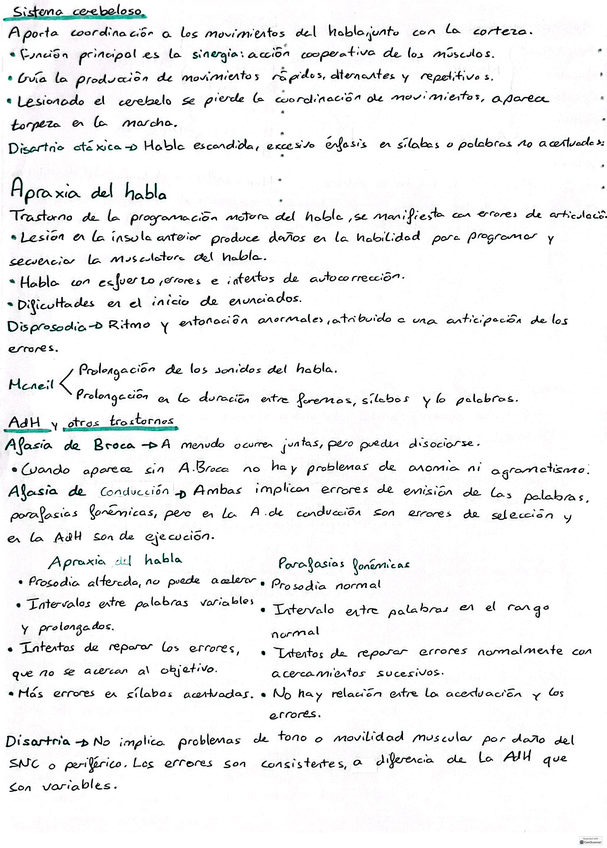 Sistema cerebeloso.
Aporta coordinación a los movimientos del habla junto con la corteza.
• Función principal es la sinergia: acción cooperativa de los músculos.
• Guía la producción de movimientos rápidos, alternantes y repetitivos.
• Lesionado el cerebelo se pierde la coordinación de movimientos, aparece
torpeza en la marcha.
Disartria atáxica → Habla escandida, excesivo énfasis en sílabas o palabras no acentuadas.
Apraxia del habla
Trastorno de la programación motora del habla, se manifiesta con errores de articulación.
• Lesión en la ínsula anterior produce daños en la habilidad para programar y
secuenciar la musculatura del habla.
• Habla con esfuerzo, errores e intentos de autocorrección.
• Dificultades en el inicio de enunciados.
Disprosodia → Ritmo y entonación anormales, atribuido a una anticipación de los
errores.
Mcneil < Prolongación de los sonidos del habla.
Prolongación en la duración entre fonemas, sílabas y/o palabras.
AdH y otros trastornos
Afasia de Broca → A menudo ocurren juntas, pero pueden disociarse.
• Cuando aparece sin A. Broca no hay problemas de anomia ni agramatismo.
Afasia de Conducción → Ambas implican errores de emisión de las palabras,
parafasias fonémicas, pero en la A. de conducción son errores de selección y
en la AdH son de ejecución.
Apraxia del habla Parafasias fonémicas
• Prosodia alterada, no puede acelerar • Prosodia normal
• Intervalos entre palabras variables • Intervalo entre palabras en el rango
y prolongados. normal
• Intentos de reparar los errores, • Intentos de reparar errores normalmente con
que no se acercan al objetivo. acercamientos sucesivos.
• Más errores en sílabas acentuadas. • No hay relación entre la acentuación y los
errores.
Disartria → No implica problemas de tono o movilidad muscular por daño del
SNC o periférico. Los errores son consistentes, a diferencia de la AdH que
son variables.